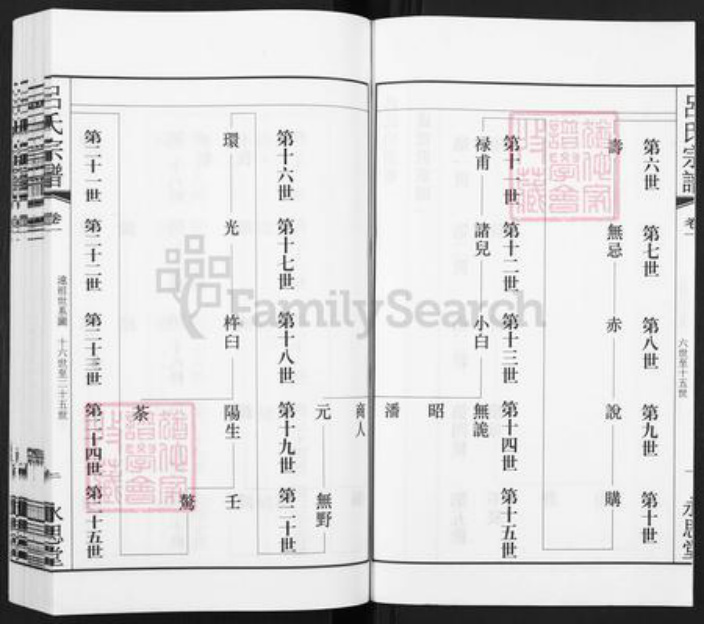 呂氏宗譜
卷一
六世至十五世
一
永思堂
第六世
第七世
第八世
第九世
第十世
壽
無忌
赤
說
購
第十一世
第十二世
第十三世
第十四世
第十五世
祿甫
諸兒
小白
無詭
昭
潘
商人
元
無野
第十六世
第十七世
第十八世
第十九世
第二十世
環
光
杵臼
陽生
壬
驁
荼
第二十一世
第二十二世
第二十三世
第二十四世
第二十五世
呂氏宗譜
卷一
遠祖世系圖
十六世至二十五世
二
永思堂
FamilySearch